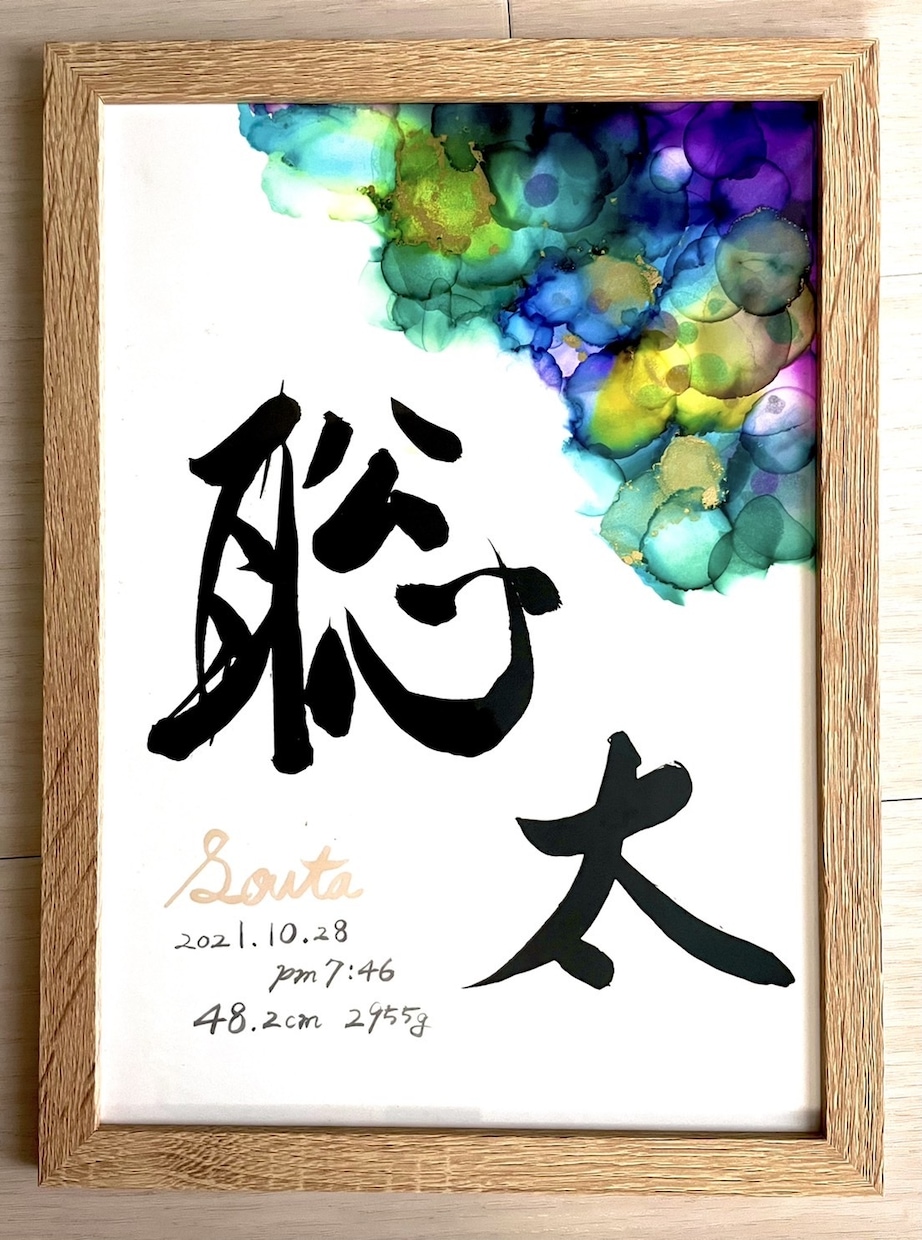 聡太
Souta
2021.10.28
pm7:46
48.2cm 2955g